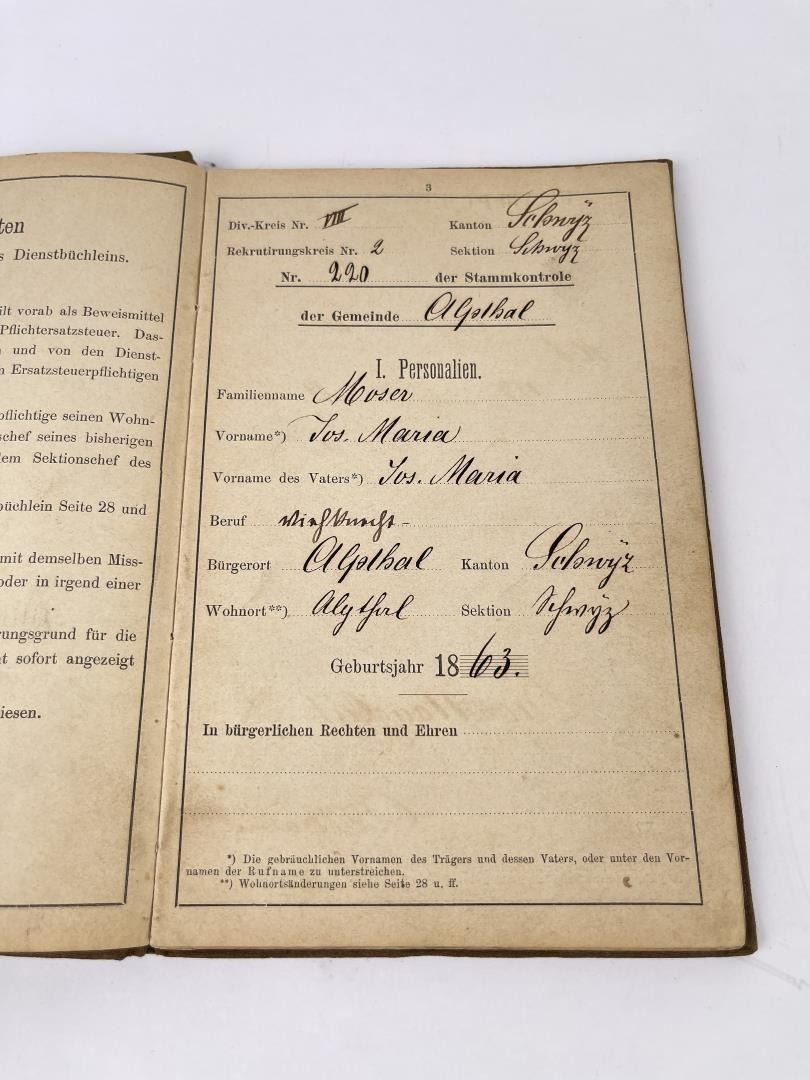 ten
s Dienstbüchleins.
ilt vorab als Beweismittel
Pflichtersatzsteuer. Das-
und von den Dienst-
n Ersatzsteuerpflichtigen
pflichtige seinen Wohn-
schef seines bisherigen
dem Sektionschef des
büchlein Seite 28 und
mit demselben Miss-
oder in irgend einer
rungsgrund für die
t sofort angezeigt
iesen.
3
Div.-Kreis Nr. VIII Kanton Schwÿz
Rekrutirungskreis Nr. 2 Sektion Schwyz
Nr. 220 der Stammkontrole
der Gemeinde Alpthal
I. Personalien.
Familienname Moser
Vorname*) Jos. Maria
Vorname des Vaters*) Jos. Maria
Beruf Viehknecht -
Bürgerort Alpthal Kanton Schwÿz
Wohnort**) Alpthal Sektion Schwÿz
Geburtsjahr 1863.
In bürgerlichen Rechten und Ehren
*) Die gebräuchlichen Vornamen des Trägers und dessen Vaters, oder unter den Vor-
namen der Rufname zu unterstreichen.
**) Wohnortsänderungen siehe Seite 28 u. ff.